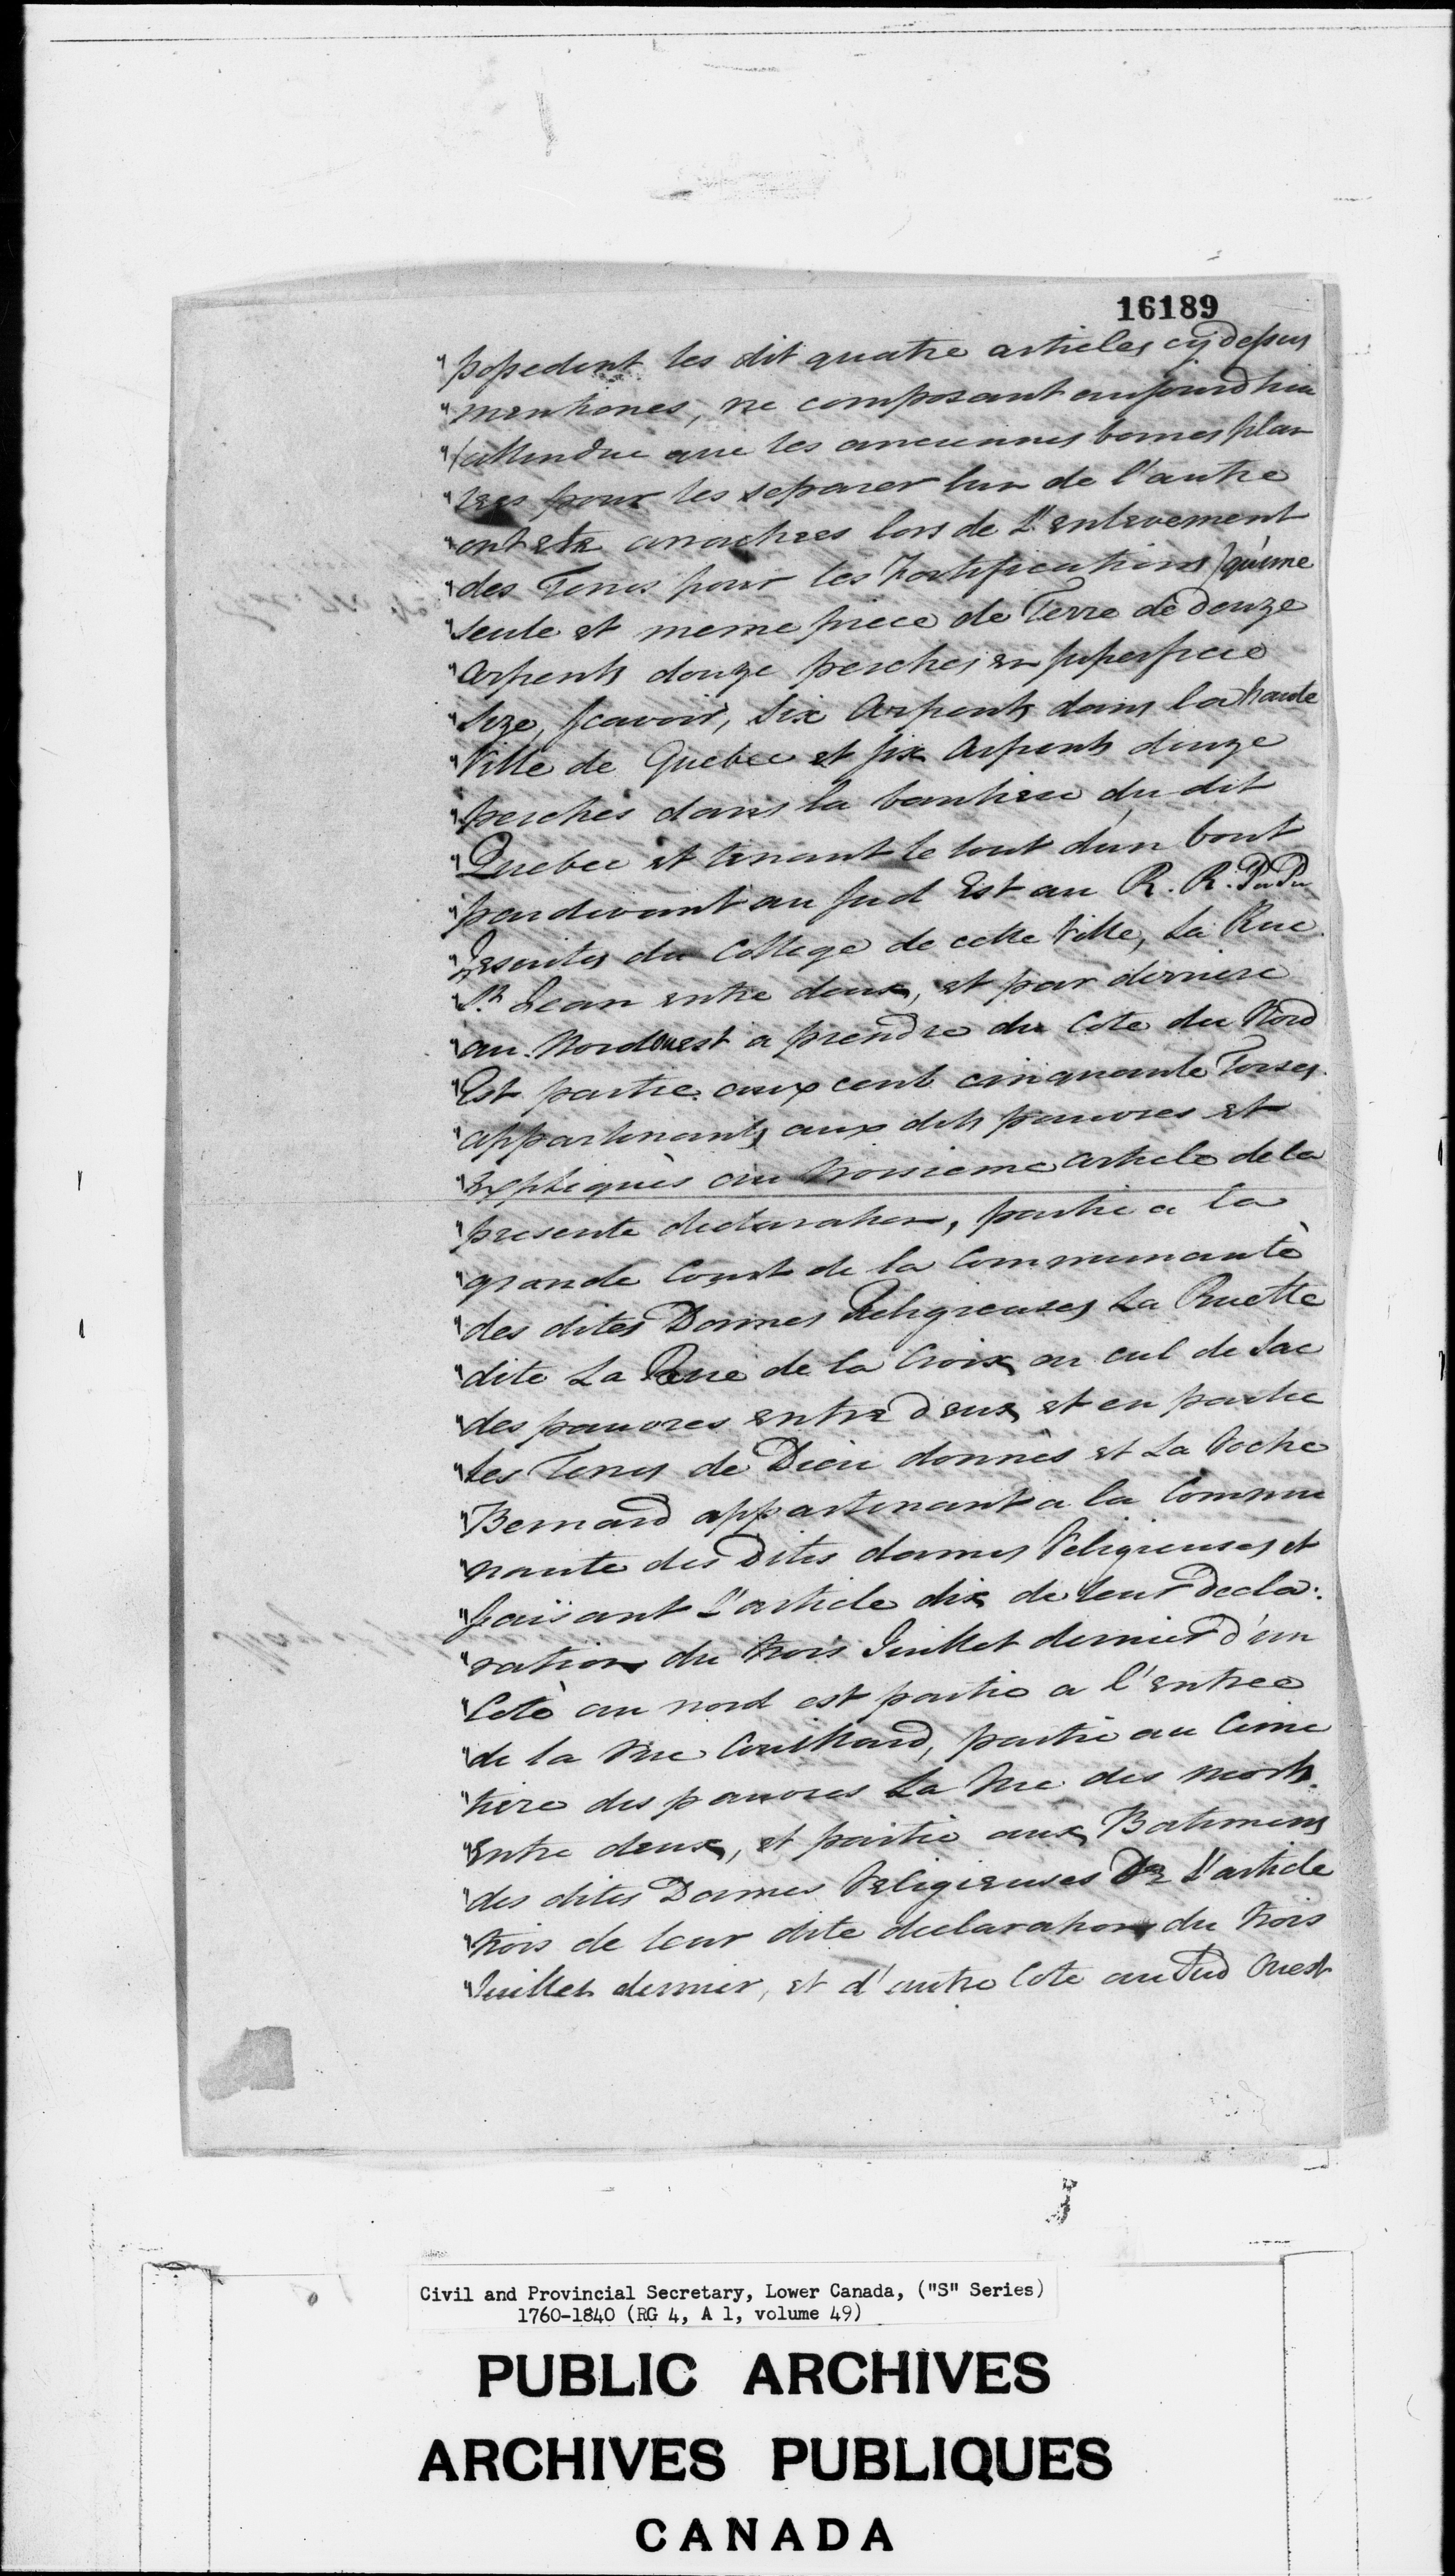 16189
"possedent les dit quatre articles cy dessus
"mentionés, ne composant aujourdhui
"(attendue que les anciennes bornes plan
"tees pour les separer lun de l'autre
"ont ete arrachees lors de L'enlevement
"des Terres pour les Fortifications) qu'une
"seule et meme piece de Terre de Douze
"Arpents douze perches en superficie
"size, scavoir, six Arpents dans la haute
"Ville de Quebec et six Arpents douze
"perches dans la banlieue du dit
"Quebec et tenant le tout d'un bout
"par devant au sud Est au R. R. Pe Pe
"Jesuites du College de cette Ville, La Rue
"St. Jean entre deux, et par derriere
"au Nord ouest a prendre du Cote du Nord
"Est partie aux cent cinquante Toises
"appartenants aux dits pauvres et
"Expliqués au troisieme article de la
"presente declaration, partie a la
"grande Court de la Communauté
"des dites Dames Religieuses La Ruette
"dite La Rue de la Croix ou cul de Sac
"des pauvres entre deux, et en partie
"Les Terres de Dieu donnés et La Roche
"Bernard appartenant a la Commu
"naute des Dites dames Religieuses et
"faisant L'article dix de leur Decla:
"ration du trois Juillet dernier d'un
"Coté au nord est partie a l'entree
"de la rue Couillard, partie au Cime
"tiere des pauvres La rue des morts
"Entre deux, et partie aux Batimens
"des dites Dames Religieuses De L'article
"trois de leur dite declaration du trois
"Juillet dernier, et d'autre Cote au Sud Ouest
Civil and Provincial Secretary, Lower Canada, ("S" Series)
1760-1840 (RG 4, A 1, volume 49)
PUBLIC ARCHIVES
ARCHIVES PUBLIQUES
CANADA